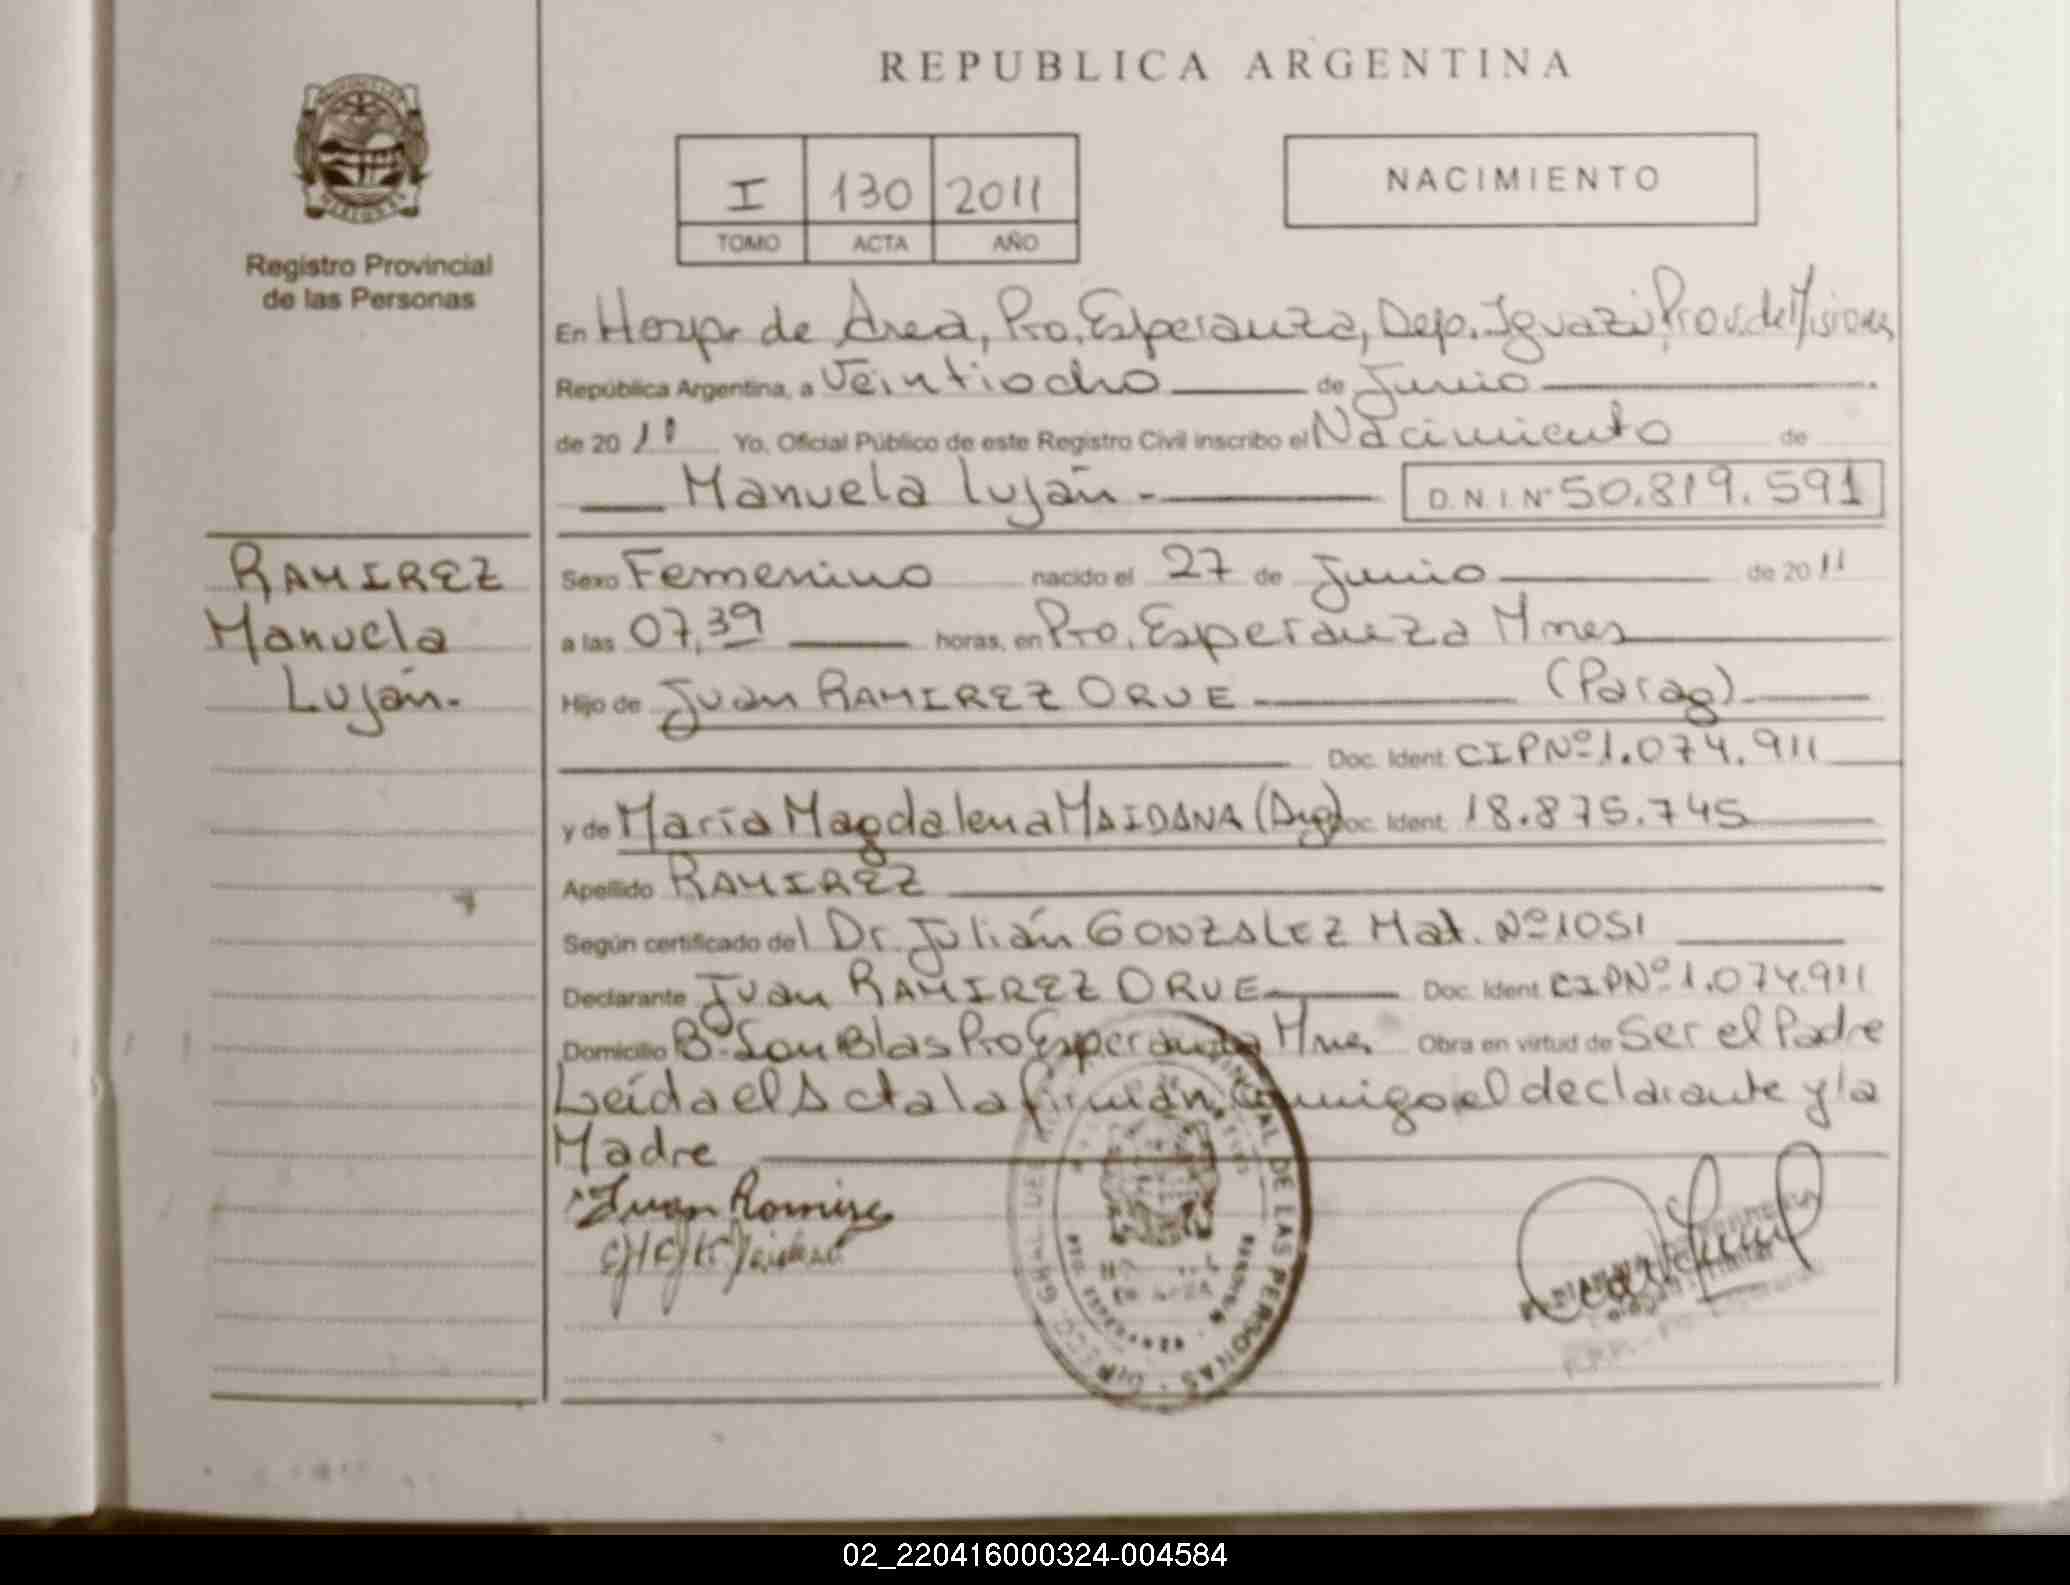 REPUBLICA ARGENTINA
I 130 2011
TOMO ACTA AÑO
NACIMIENTO
Registro Provincial
de las Personas
En Hosp. de Area, Pto. Esperanza, Dep. Iguazú, Prov. de Misiones
República Argentina, a Veintiocho de Junio
de 2011 Yo, Oficial Público de este Registro Civil inscribo el Nacimiento de
Manuela Luján - D.N.I. Nº 50.819.591
RAMIREZ
Manuela
Luján.-
Sexo Femenino nacido el 27 de Junio de 2011
a las 07,39 horas, en Pto. Esperanza Mnes
Hijo de Juan RAMIREZ ORUE (Parag)
Doc. Ident. CIPNº1.074.911
y de María Magdalena MAIDANA (Arg) Doc. Ident. 18.875.745
Apellido RAMIREZ
Según certificado del Dr. Julián GONZALEZ Mat. Nº1051
Declarante Juan RAMIREZ ORUE Doc. Ident. CIPNº1.074.911
Domicilio Bº San Blas Pto Esperanza Mnes. Obra en virtud de Ser el Padre
Leída el Acta la firman conmigo el declarante y la
Madre
Juan Ramirez
DE LAS PERSONAS
02_220416000324-004584